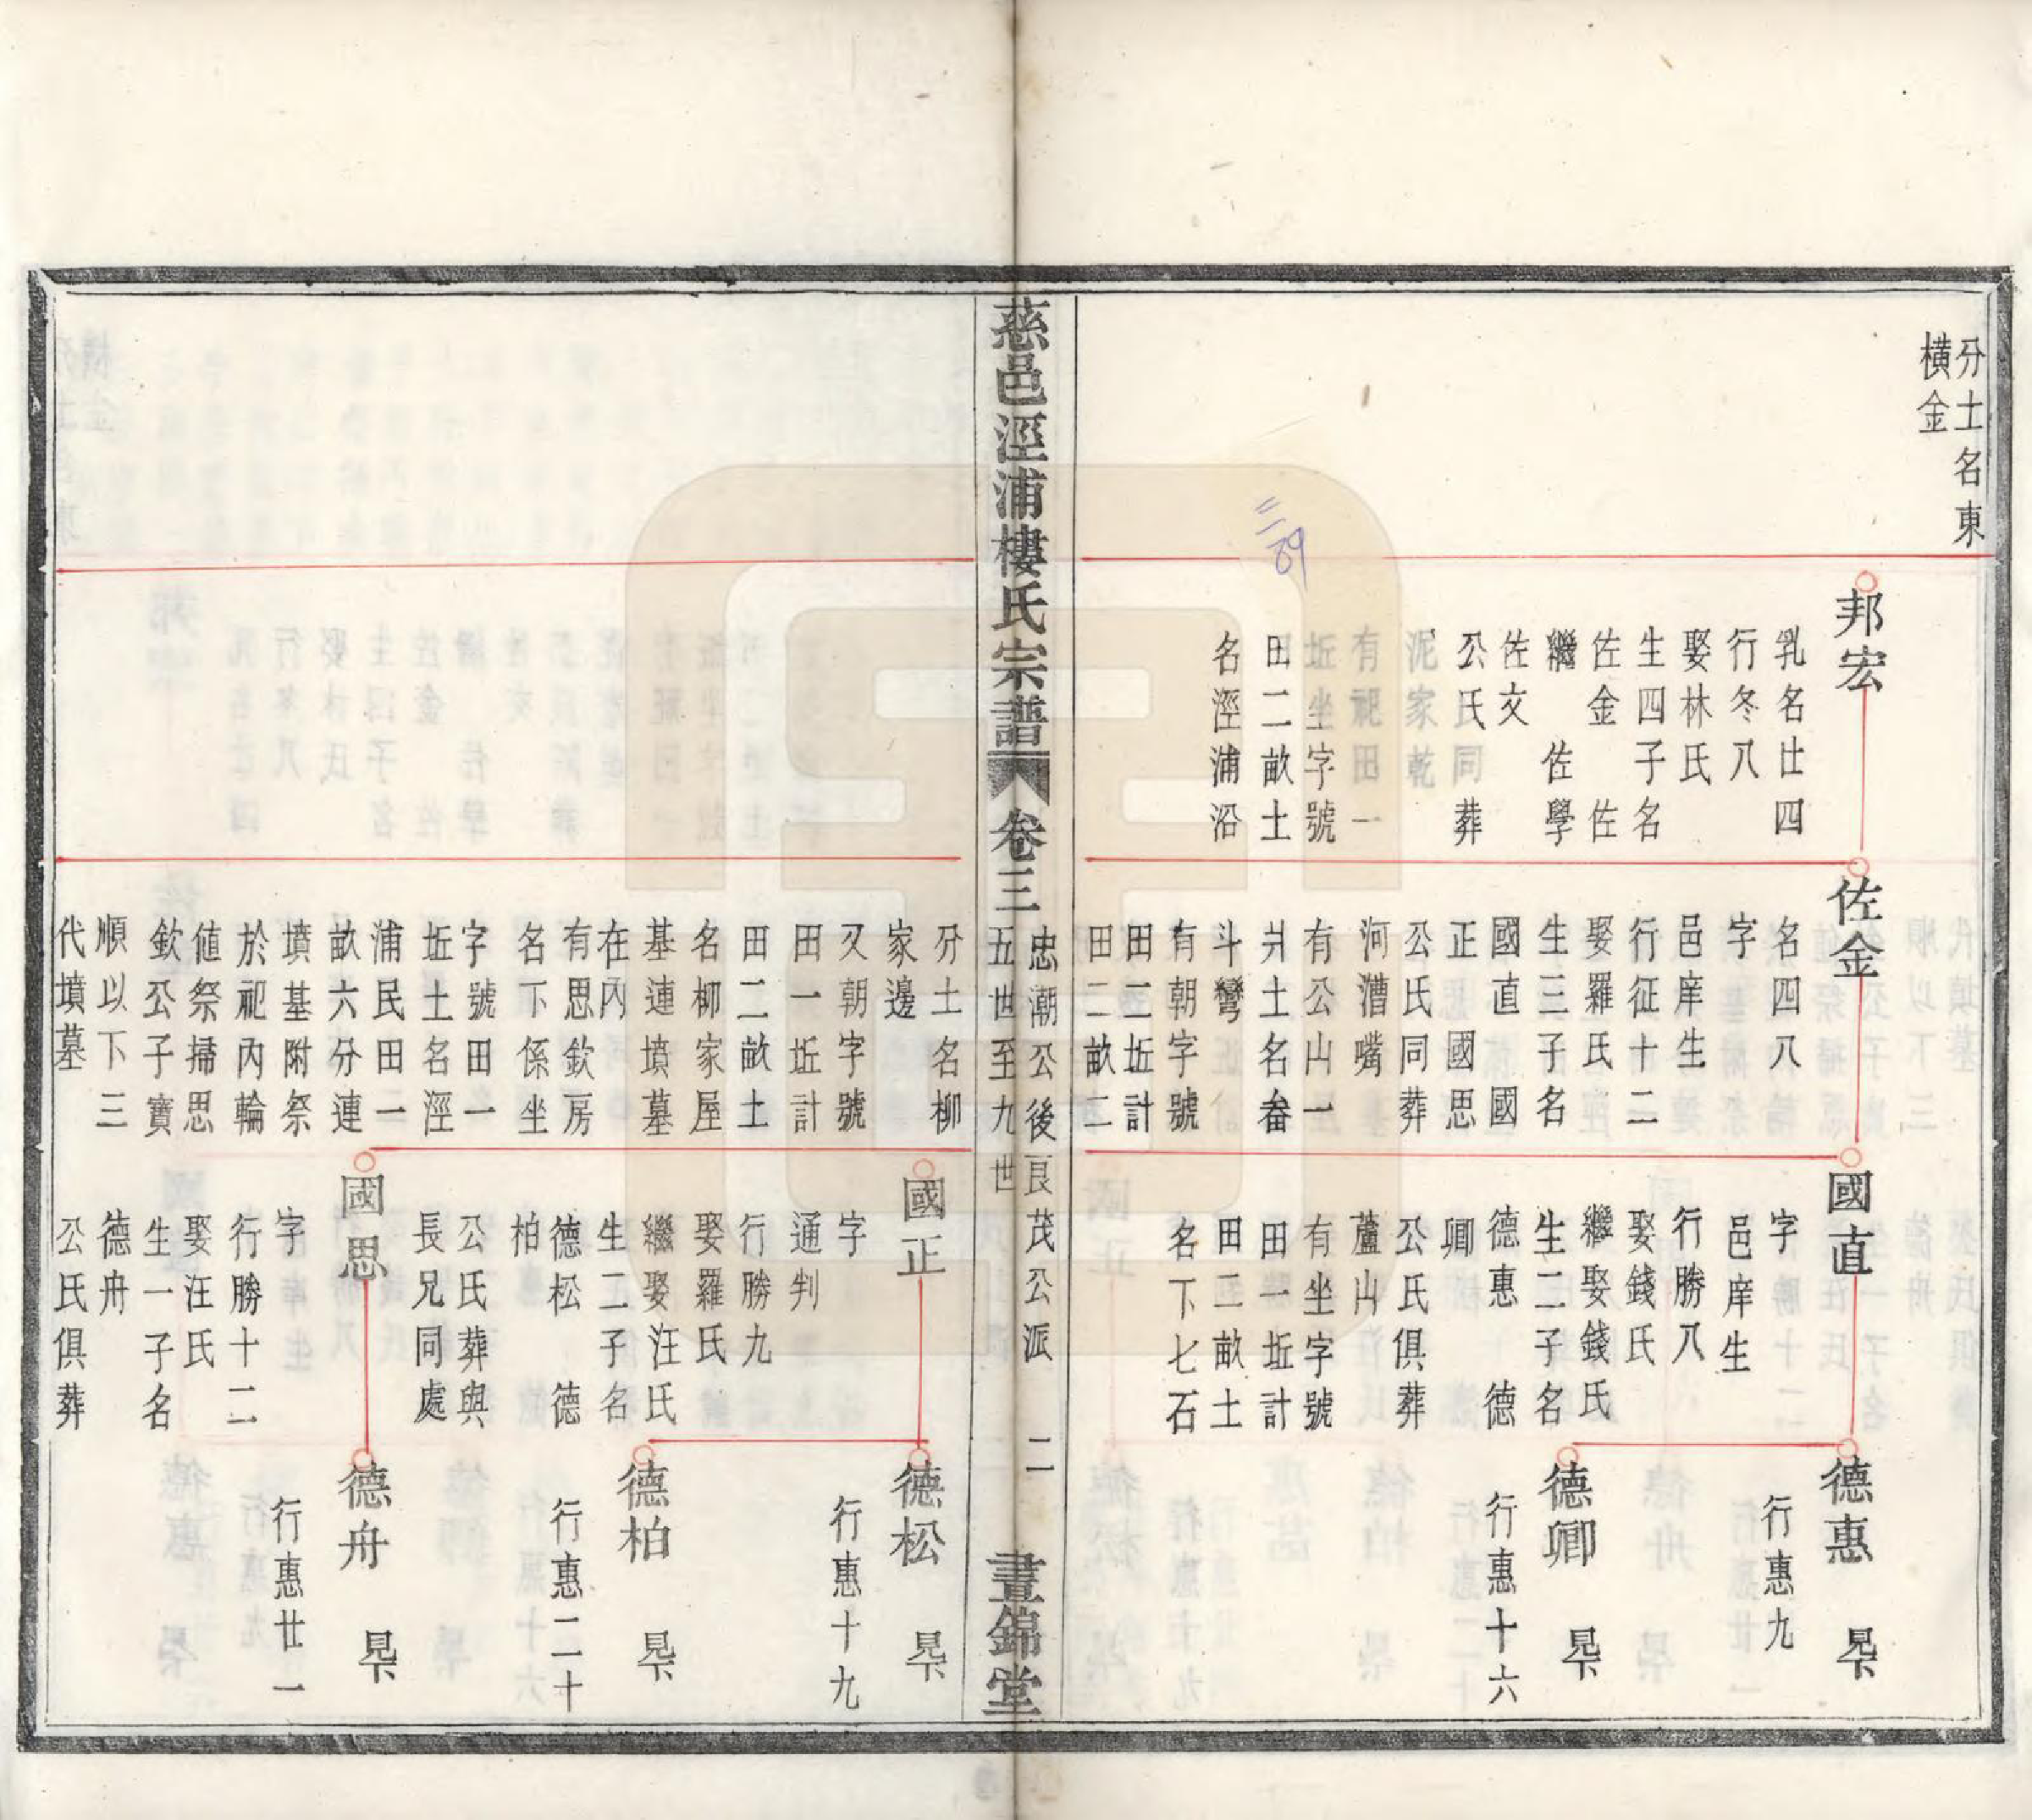 分土名東
橫金
邦宏
乳名仕四
行冬八
娶林氏
生四子名
佐金　佐
繼　佐學
佐文
公氏同葬
泥家乾
有祀田一
坵坐字號
田二畝土
名涇浦沿
佐金
名四八
字
邑庠生
行征十二
娶羅氏
生三子名
國直　國
正　國思
公氏同葬
河漕嘴
有公山一
爿土名畚
斗彎
有朝字號
田二坵計
田二畝二
國直
字
邑庠生
行勝八
娶錢氏
繼娶錢氏
生二子名
德惠　德
卿
公氏俱葬
蘆山
有坐字號
田一坵計
田二畝土
名下七石
德惠
行惠九
德卿
行惠十六
慈邑涇浦樓氏宗譜
卷三
忠潮公後良茂公派　二
五世至九世
晝錦堂
分土名柳
家邊
又朝字號
田一坵計
田二畝土
名柳家屋
基連墳墓
在內
有思欽房
名下係坐
字號田一
坵土名涇
浦民田一
畝六分連
墳基附祭
於祀內輪
值祭掃思
欽公子寶
順以下三
代墳墓
國正
字
通判
行勝九
娶羅氏
繼娶汪氏
生二子名
德松　德
柏
公氏葬與
長兄同處
國思
字
行勝十二
娶汪氏
生一子名
德舟
公氏俱葬
德松
行惠十九
德柏
行惠二十
德舟
行惠廿一